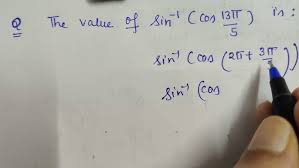 Q The value of sin⁻¹ (cos 13π/5) is :
sin⁻¹ (cos (2π + 3π/5))
sin⁻¹ (cos